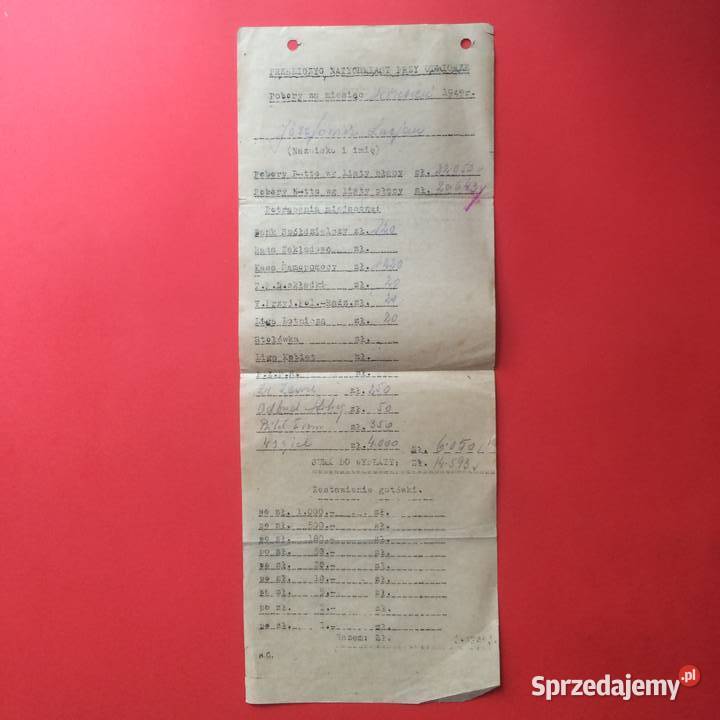 PRZELICZYĆ NATYCHMIAST PRZY ODBIORZE
Pobory za miesiąc 1949r.
(Nazwisko i imię)
Pobory B-tto wg listy płacy zł. 22.053
Pobory N-tto wg listy płacy zł. 20.643
Potrącenia miesięczne:
Bank Spółdzielczy zł. 220
Kasa Zakładowa zł.
Kasa Zapomogowy zł. 1220
zł. 20
T.Przyj.Pol.-Radz.zł. 20
Liga Lotnicza zł. 20
Stołówka zł.
Liga Kobiet zł.
zł.
zł. 250
Odbud. zł. 50
Bilet zł. 350
Węgiel zł. 4.000 zł. 6.050
SUMA DO WYPŁATY: zł. 14.593
Zestawienie gotówki.
po zł. 1.000.- zł.
po zł. 500.- zł.
po zł. 100.- zł.
po zł. 50.- zł.
po zł. 20.- zł.
po zł. 10.- zł.
po zł. 5.- zł.
po zł. 2.- zł.
po zł. 1.- zł.
Razem: Zł.
Sprzedajemy.pl